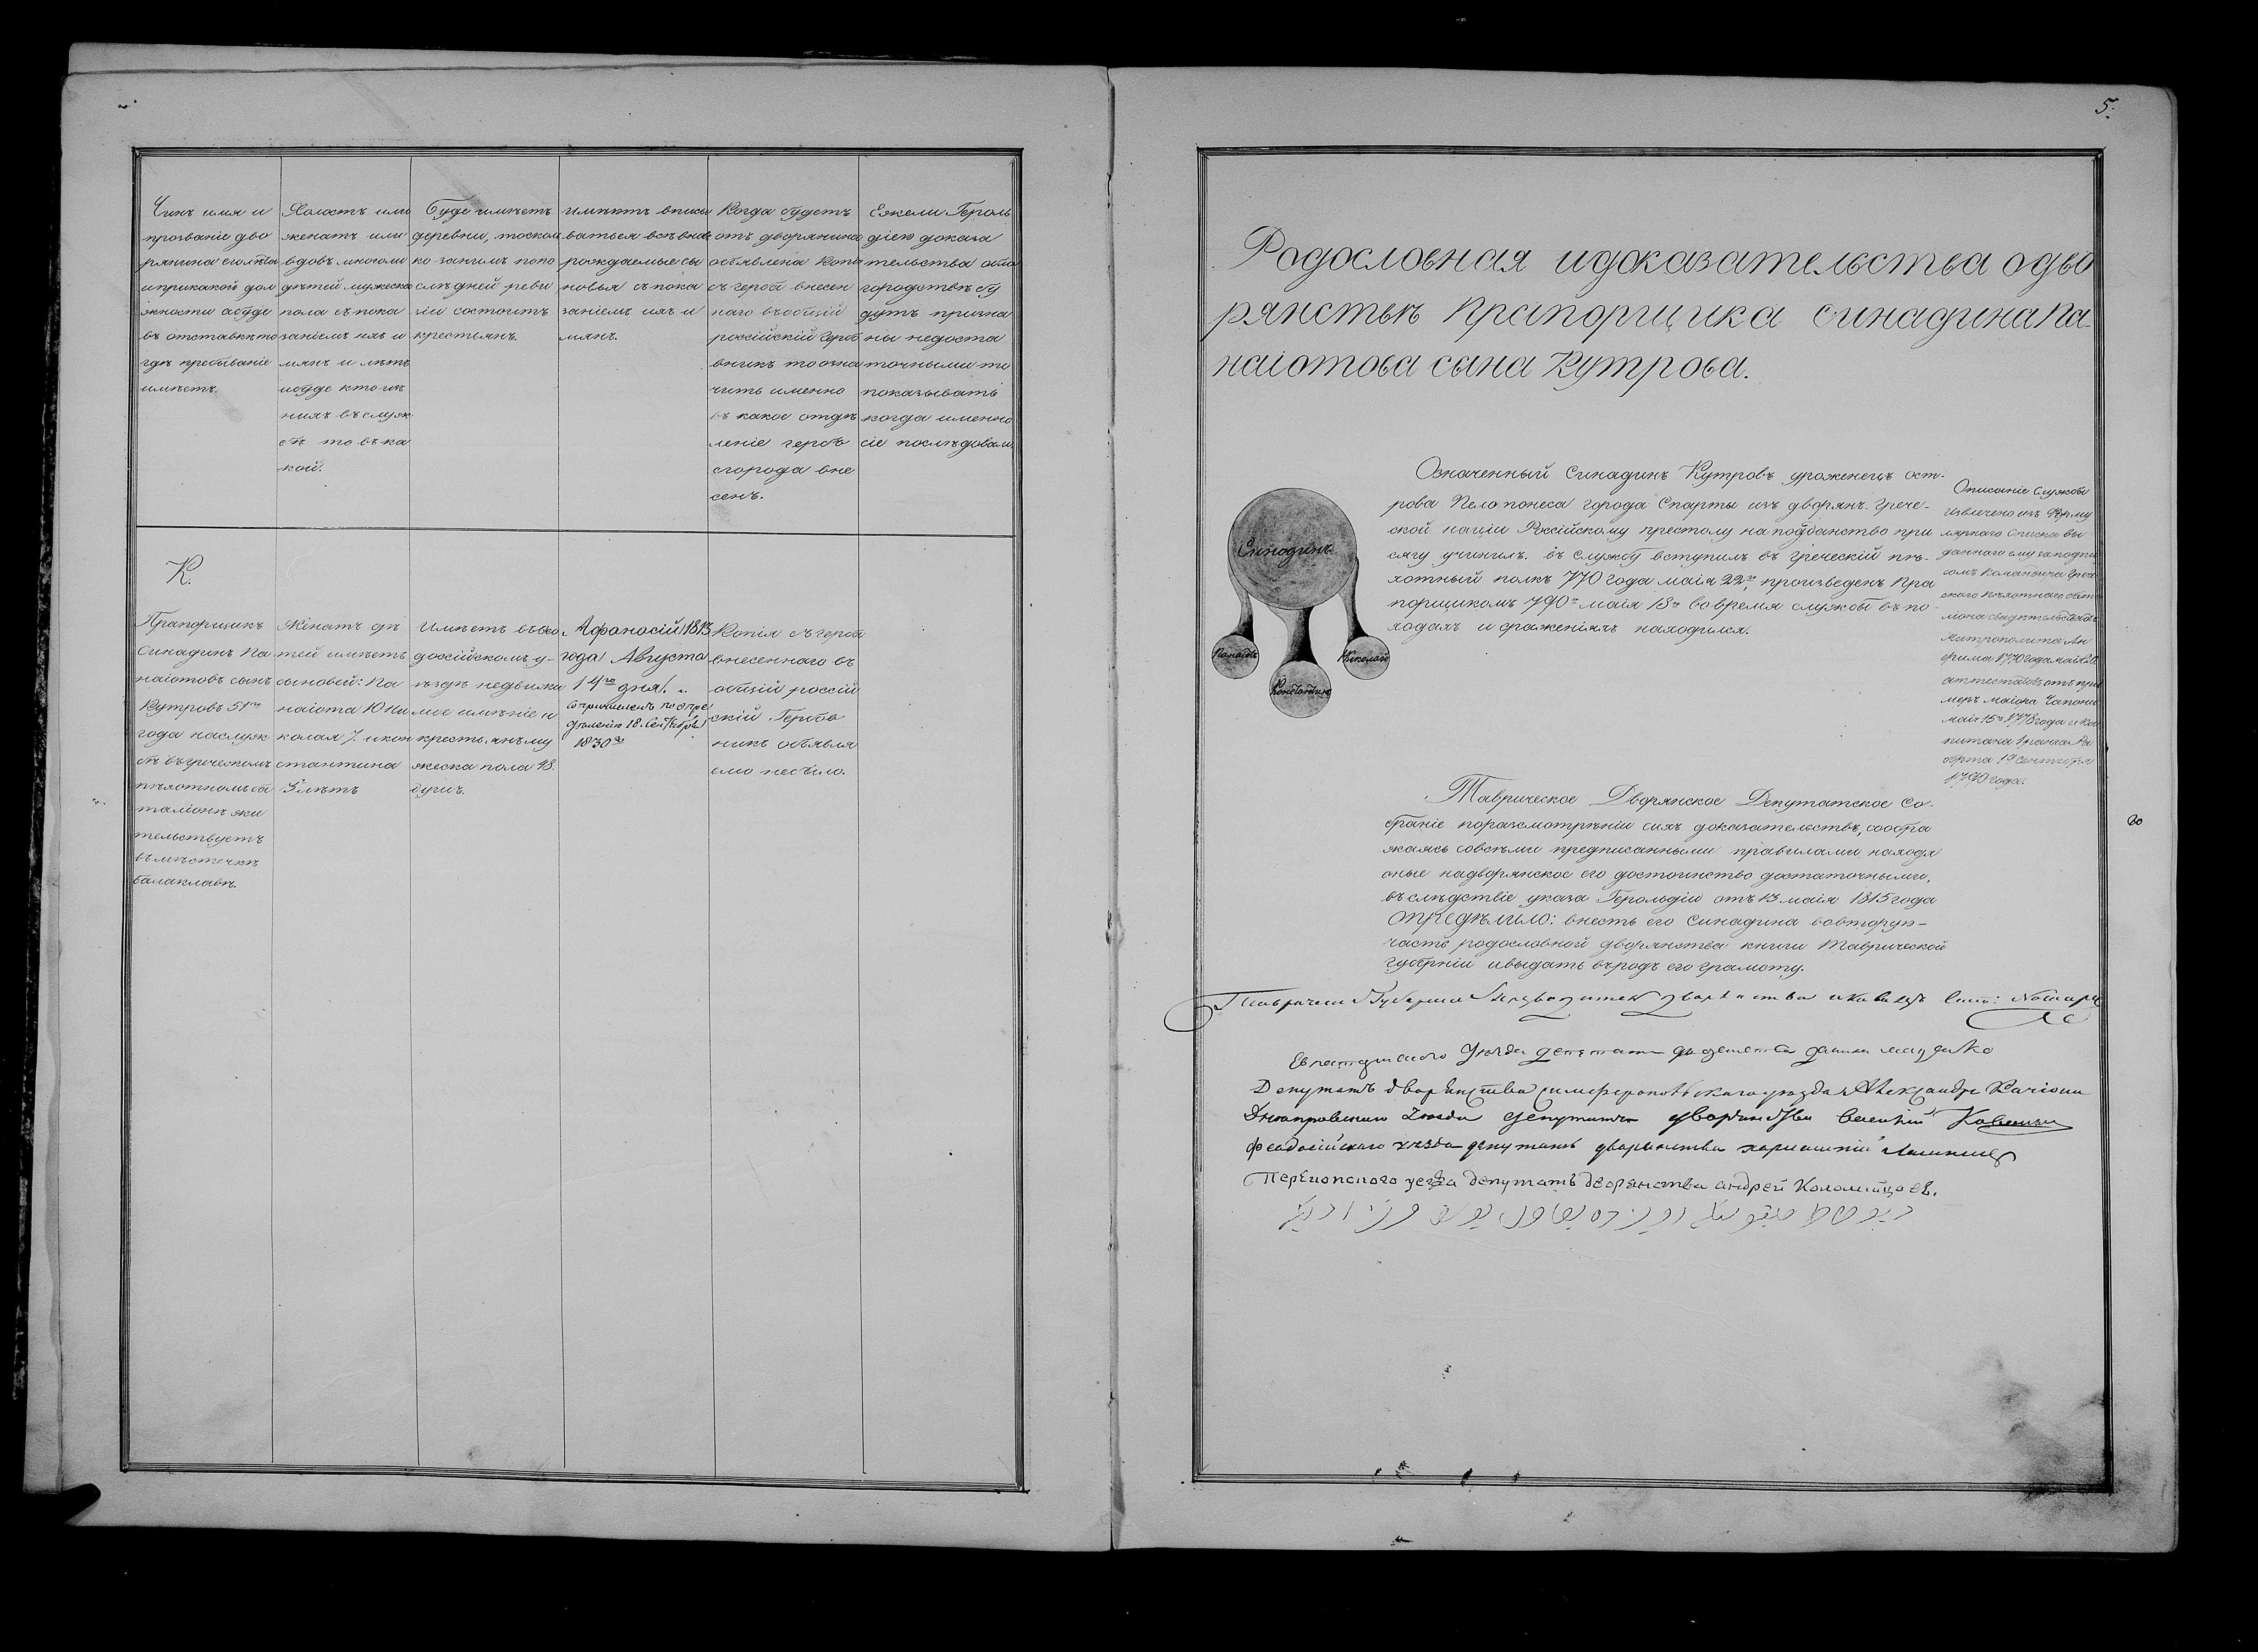 Чинъ имя и
прозваніе дво
рянина еголѣта
иприкакой дол
жности абуде
въ отставкѣ то
гдѣ пребываніе
имѣетъ.
Холостъ или
женатъ или
вдовъ многоли
дѣтей мужеска
пола съ пока
заніемъ ихъ и
мянъ и лѣтъ
ибуде кто изъ
нихъ въ служ
бѣ то въ ка
кой.
Буде имѣетъ
деревни, тоскол
ко занимъ попо
слѣдней реви
зіи состоитъ
крестьянъ.
Имѣютъ вписы
ваться всѣ внов
рождаемые сы
новья съ пока
заніемъ ихъ и
мянъ.
Когда будетъ
отъ дворянина
объявлена копія
съ герба внесен
наго въ общій
россійскій герб
вникъ то озна
чить именно
въ какое отдѣ
леніе гербъ
егорода вне
сенъ.
Ежели Героль
діею доказа
тельства обла
городствѣ бу
дутъ призна
ны недоста
точными то
показывать
когда именно
сіе послѣдовало.
К.
Прапорщикъ
Синадинъ Па
наіотовъ сынъ
Кутровъ 51го
года наслуж
бѣ въ греческомъ
пѣхотномъ ба
таліонѣ жи
тельствуетъ
въ мѣстечкѣ
балаклавѣ.
Женатъ дѣ
тей имѣетъ
сыновей: Па
наіота 10 Ни
колая 7. икон
стантина
3 лѣтъ
Имѣетъ въ Ѳео
досійскомъ у-
ѣздѣ недвижи
мое имѣніе и
крестьянъ му
жеска пола 18.
душъ.
Афанасій 1813.
года Августа
14го дня.
Сопричисленъ по опре
дѣленію 18. Сентября
1830го
Копія съ герба
внесеннаго въ
общій россій
скій Гербо
никъ объявля
емо небыло.
5.
Родословная идоказательства одво
рянствѣ Прапорщика Синадина Па-
наіотова сына Кутрова.
Синадинъ.
Панаіотъ
Константинъ
Николай
Означенный Синадинъ Кутровъ уроженецъ ост-
рова Пелопонеса города Спарты изъ дворянъ. Грече-
ской націи Россійскому престолу наподданство при
сягу учинилъ. въ службу вступилъ въ греческій пѣ-
хотный полкъ 770 года маія 22го, произведенъ Пра
порщикомъ 790го маія 13го вовремя службы въ по-
ходахъ и сраженіяхъ находился.
Описаніе Службы
Извлечено изъ Форму
лярнаго Списка вы
даннаго ему заподпи
сомъ Командира Грече
скаго пѣхотнаго бата
ліона свидѣтельства отъ
митрополита Ан
фима 1770 года маія 26.
аттестатовъ отъ при
меръ маіора Чапони
маія 15го 1778 года и Ка
питана 1 ранга Ра
берта 1го сентября
1790 года.
Таврическое Дворянское Депутатское Со-
браніе поразсмотрѣніи сихъ доказательствъ, сообра
жаясь совсѣми предписанными правилами находя
оные надворянское его достоинство достаточными,
въ слѣдствіе указа Герольдіи отъ 13 маія 1815 года
Опредѣлило: внесть его Синадина вовторую
часть родословной дворянства книги Таврической
губерніи ивыдать въ родъ его грамоту.
Депутатъ дворянства симферопольскаго уѣзда Александръ
Днепровскаго уѣзда депутатъ дворянства
Феодосійскаго уѣзда депутатъ дворянства
Перекопского уезда депутатъ дворянства андрей Коломийцовъ.